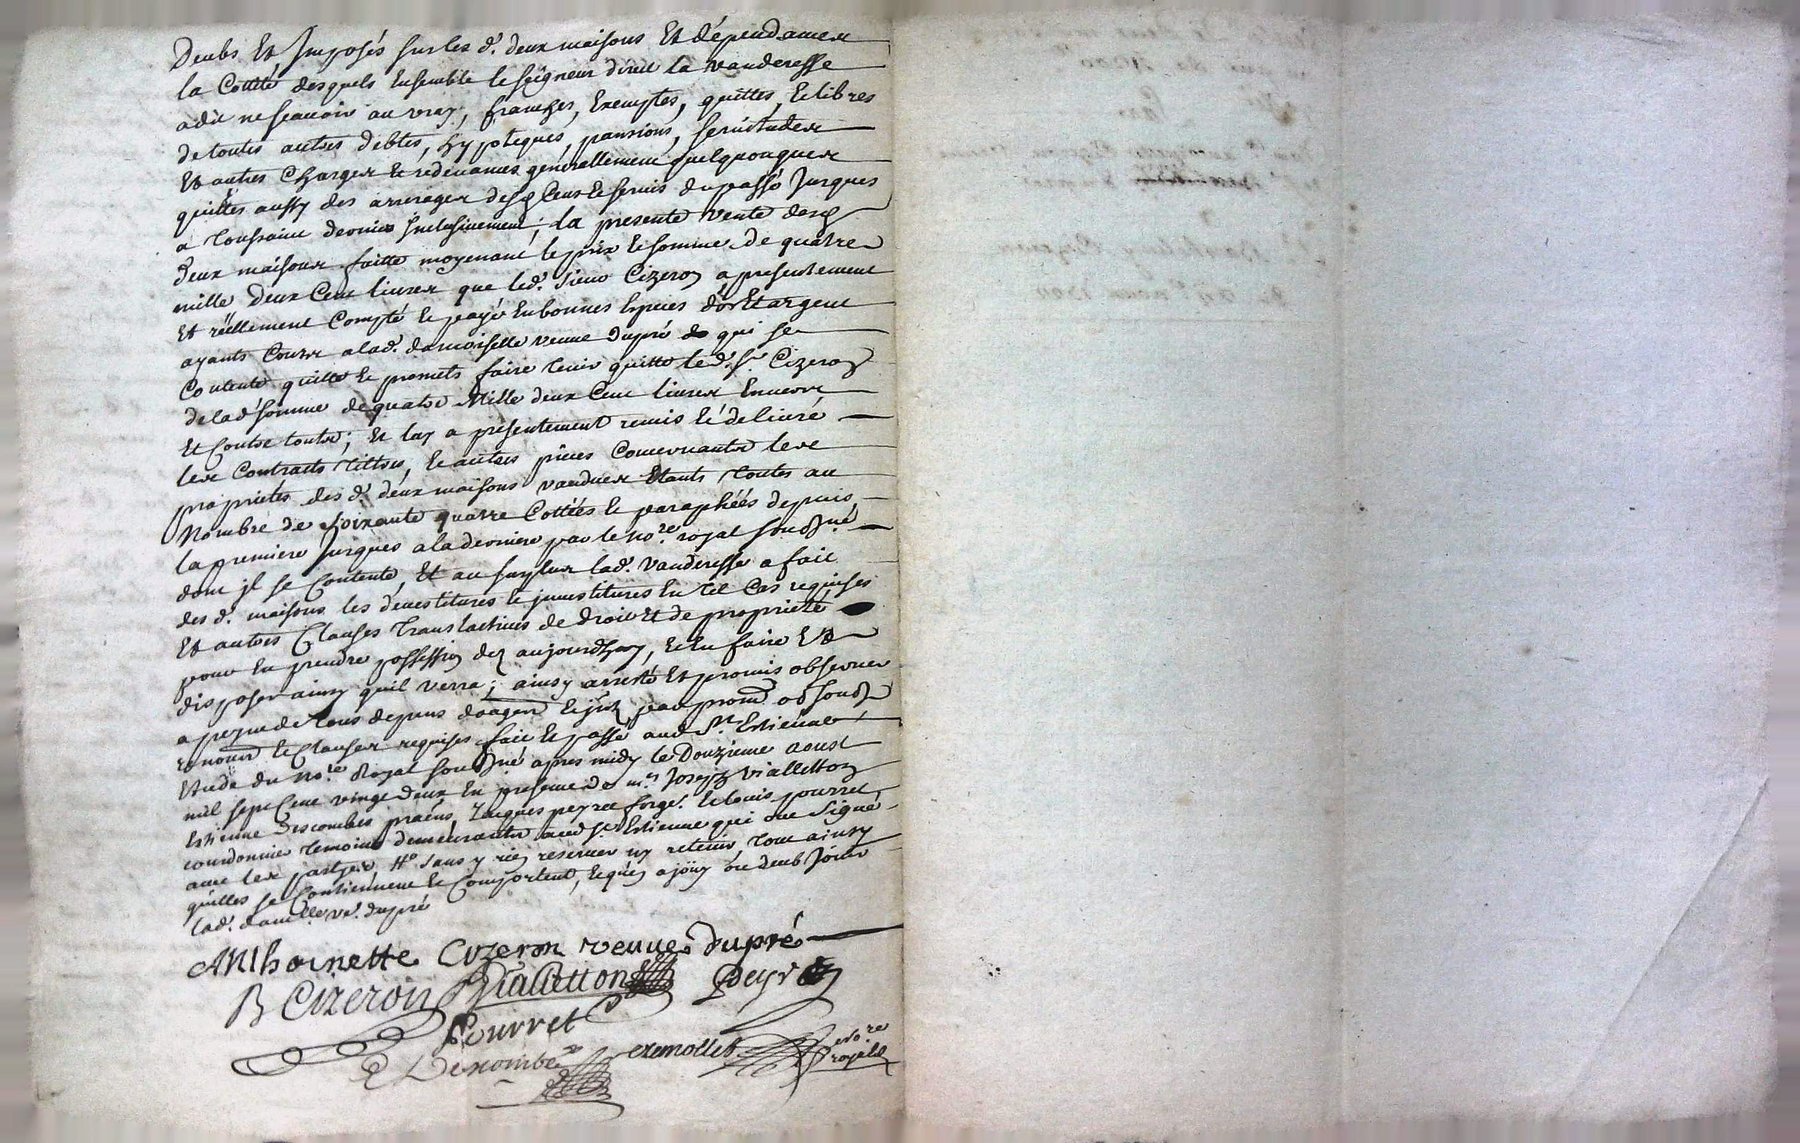 Deubs Et Imposés sur les d. deux maisons Et dépendances
la Cottité desquels Ensemble le seigneur direct la vanderesse
a dit ne scauoir au vray, franches, Exemptes, quittes, Et libres
de toutes autres debtes, hypoteques, pansions, seruitudes
Et autres Charges Et redeuances generallement quelquonques
quittes aussy des arrerages desd Cens Et seruis du passé Jusques
a Toussainct dernier Inclusiuement; la presente vente desd
deux maisons faitte moyenant le prix Et somme de quatre
mille deux Cent liures que led. sieur Cizeron a presentement
Et réellement Compté Et payé En bonnes Especes d'or Et argent
ayants Cours a lad. damoiselle veuue dupré qui se
Contente quitte Et promets faire tenir quitte led. sr. Cizeron
de lad somme de quatre Mille deux Cent liures Enuers
Et Contre touts; Et luy a presentement remis Et deliuré
les Contracts tittres, Et autres pieces Concernants les
proprietés des d. deux maisons vandues Etants toutes au
Nombre de soixante quatre Cottées Et paraphées depuis
la premiere Jusques a la derniere par le nore. royal sousné
dont jl se Contente, Et au surplus lad. vanderesse a fait
des d. maisons les deuestitures Et jnuestitures En tel Cas requises
Et autres Clauses translatiues de droit Et de proprieté
pour En prendre possession dez aujourdhuy, Et En faire Et
disposer ainsy quil verra; ainsy arresté Et promis obseruer
a peyne de tous depens
Et Clauses requises fait Et passé aud St. Estienne
Etude du nore Royal sousné apres midy le Douzieme aoust
mil sept Cent vingt deux En presence de mr. Joseph Vialletton
Estienne Descombes praëns, Jacques peyret forger. Et louis pourret
courdonnier temoins demeurants aud St Estienne qui ont Signé
auec les partyes, # sans y rien reseruer ny retenir, tout ainsy
quelles se Contiennent Et Comportent, Et quen a jouy ou deub Jouir
lad. damlle. ve. dupré
Anthoinette Cizeron veuue dupré
B Cizeron Vialletton Peyret
Pourret
E Descombes ezemollet nore
royal